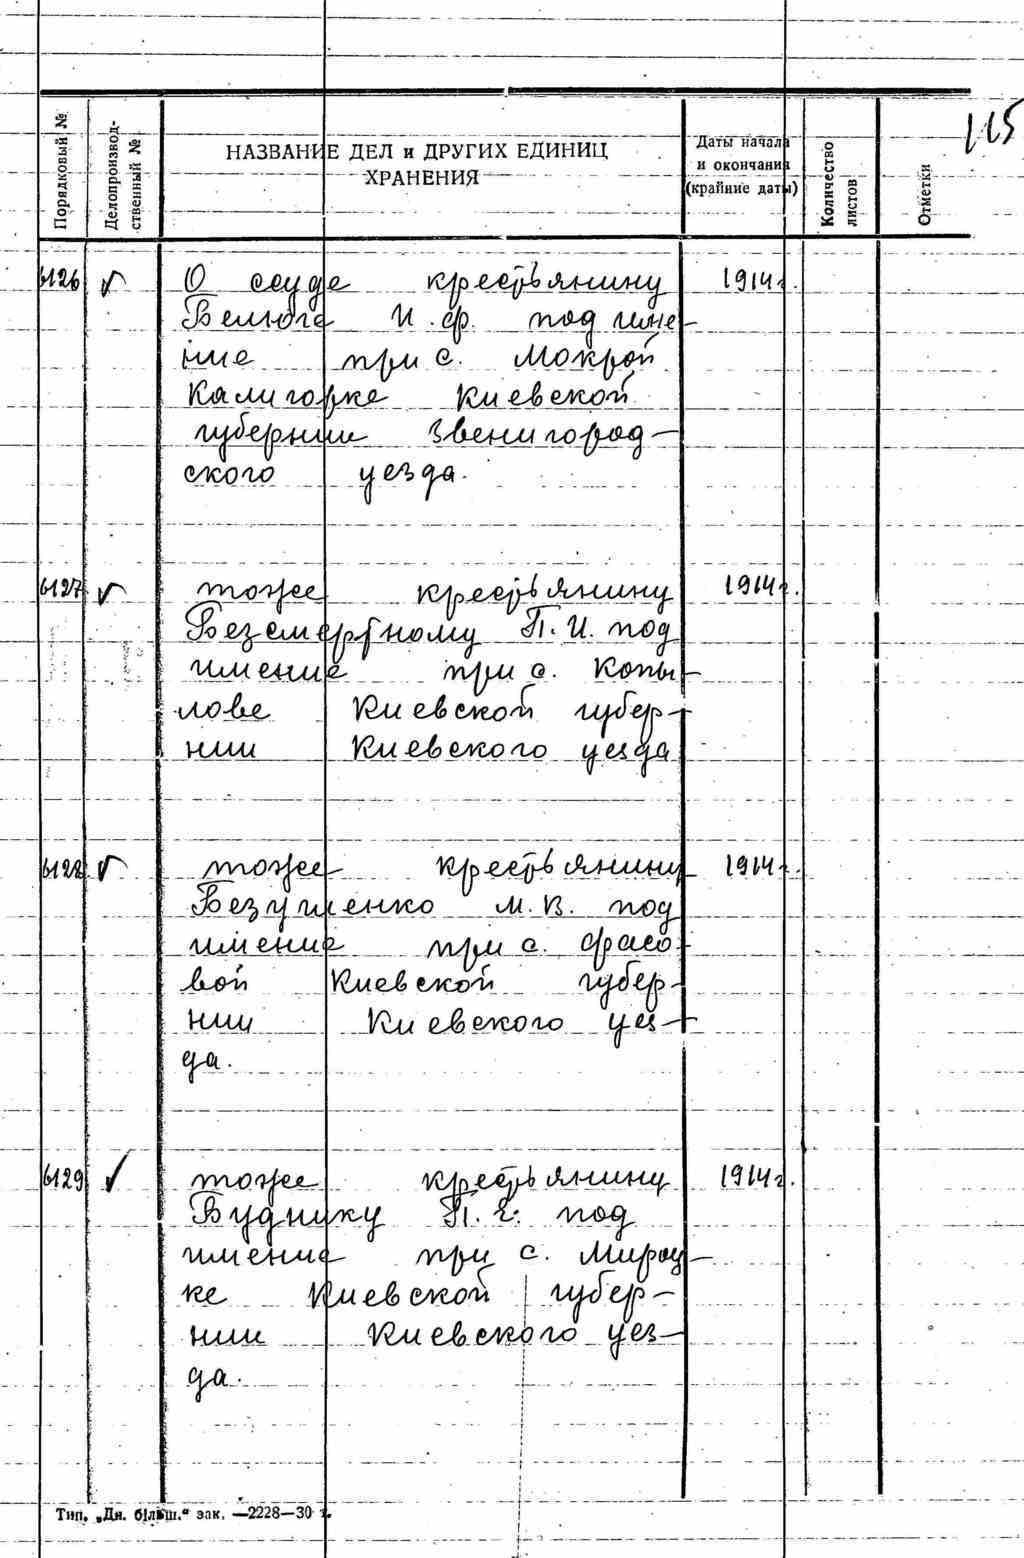 115
Порядковый №
Делопроизвод-
ственный №
НАЗВАНИЕ ДЕЛ и ДРУГИХ ЕДИНИЦ
ХРАНЕНИЯ
Даты начала
и окончания
(крайние даты)
Количество
листов
Отметки
6126 О ссуде крестьянину 1914г.
Белюга И.Ф. под име-
ние при с. Мокрой
Калигорке Киевской
губернии Звенигород-
ского уезда.
6127 тоже крестьянину 1914г.
Безсмертному П.И. под
имение при с. Копы-
лове Киевской губер-
нии Киевского уезда
6128 тоже крестьянину 1914г.
Безушенко М.В. под
имение при с. Фасо-
вой Киевской губер-
нии Киевского уез-
да.
6129 тоже крестьянину 1914г.
Буднику П.Е. под
имение при с. Мироц-
ке Киевской губер-
нии Киевского уез-
да.
Тип. „Дн. більш." зак. —2228—30 г.